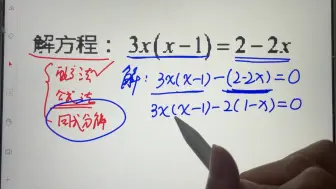 解方程：3x(x-1)=2-2x
配方法✓
公式法
因式分解
解：3x(x-1)-(2-2x)=0
3x(x-1)-2(1-x)=0